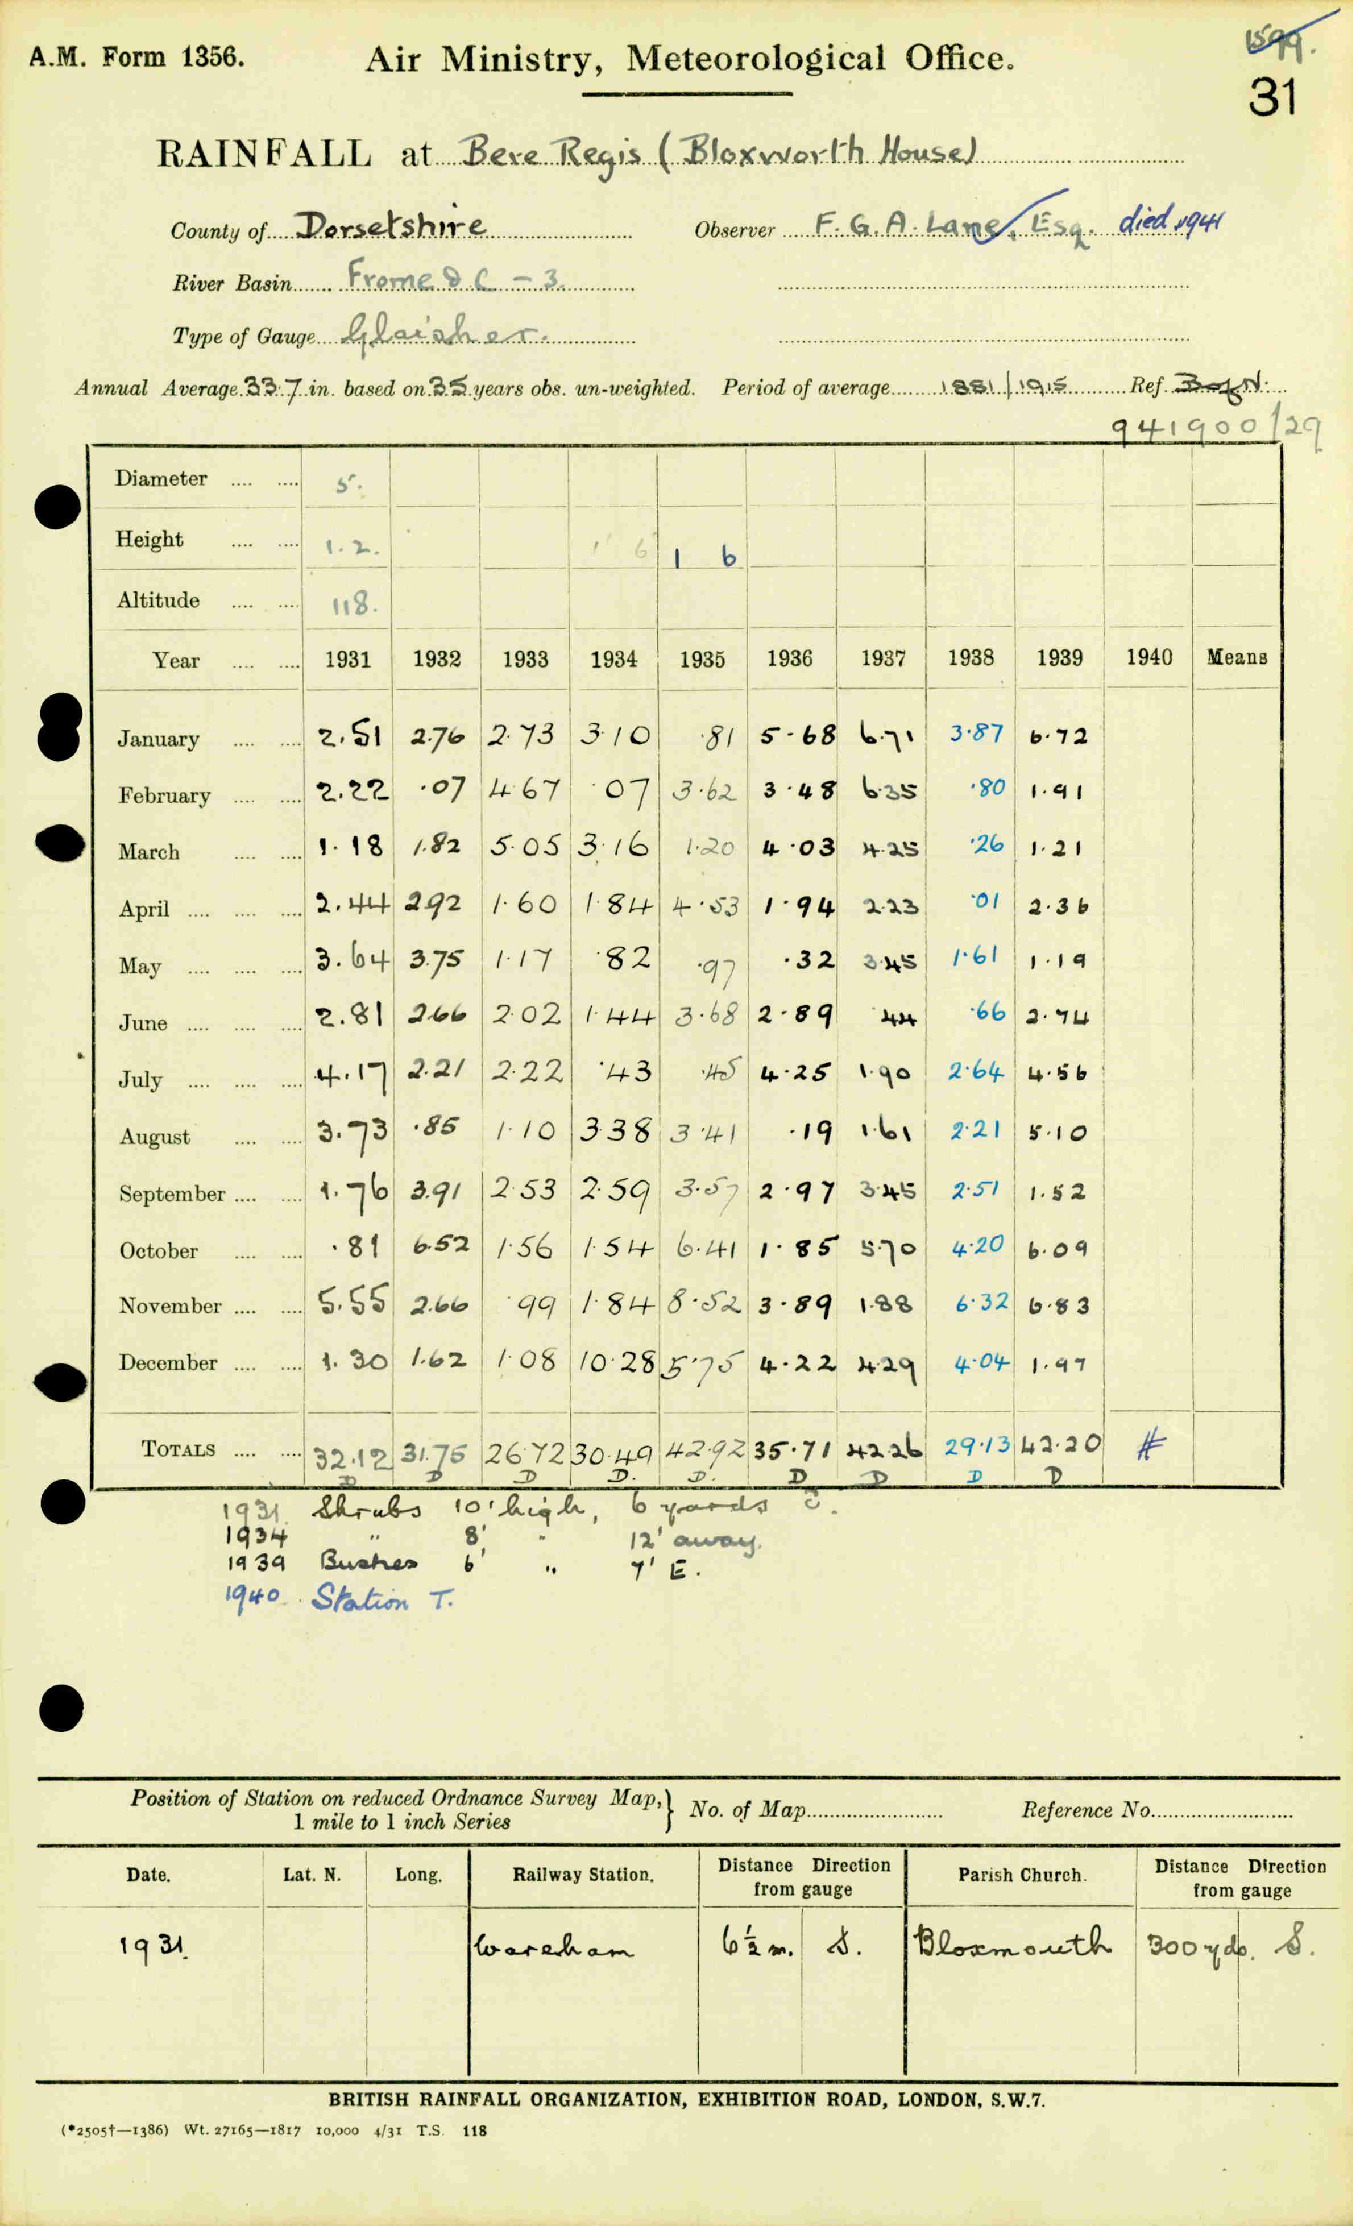 1599.
A.M. Form 1356. Air Ministry, Meteorological Office.
31
RAINFALL at Bere Regis (Bloxworth House)
County of Dorsetshire Observer F. G. A. Lane, Esq. died 1941
River Basin Frome &c - 3.
Type of Gauge Glaisher.
Annual Average 33.7 in. based on 35 years obs. un-weighted. Period of average 1881/1915 Ref. B of N.
941900/29
Diameter 5.
Height 1.2. 1 6 1 6
Altitude 118.
Year 1931 1932 1933 1934 1935 1936 1937 1938 1939 1940 Means
January 2.51 2.76 2.73 3.10 .81 5.68 6.71 3.87 6.72
February 2.22 .07 4.67 .07 3.62 3.48 6.35 .80 1.91
March 1.18 1.82 5.05 3.16 1.20 4.03 4.25 .26 1.21
April 2.44 2.92 1.60 1.84 4.53 1.94 2.23 .01 2.36
May 3.64 3.75 1.17 .82 .97 .32 3.45 1.61 1.19
June 2.81 2.66 2.02 1.44 3.68 2.89 .44 .66 2.74
July 4.17 2.21 2.22 .43 .45 4.25 1.90 2.64 4.56
August 3.73 .85 1.10 3.38 3.41 .19 1.61 2.21 5.10
September 1.76 3.91 2.53 2.59 3.57 2.97 3.45 2.51 1.52
October .81 6.52 1.56 1.54 6.41 1.85 5.70 4.20 6.09
November 5.55 2.66 .99 1.84 8.52 3.89 1.88 6.32 6.83
December 1.30 1.62 1.08 10.28 5.75 4.22 4.29 4.04 1.97
TOTALS 32.12 31.75 26.72 30.49 42.92 35.71 42.26 29.13 42.20 #
D D D D. D. D D D D
1931 Shrubs 10' high, 6 yards
1934 " 8' " 12' away.
1939 Bushes 6' " 7' E.
1940 Station T.
Position of Station on reduced Ordnance Survey Map, 1 mile to 1 inch Series } No. of Map Reference No.
Date. Lat. N. Long. Railway Station. Distance Direction from gauge Parish Church. Distance Direction from gauge
1931. Wareham 6½ m. S. Bloxmouth 300 yds. S.
BRITISH RAINFALL ORGANIZATION, EXHIBITION ROAD, LONDON, S.W.7.
(*2505†—1386) Wt. 27165—1817 10,000 4/31 T.S. 118